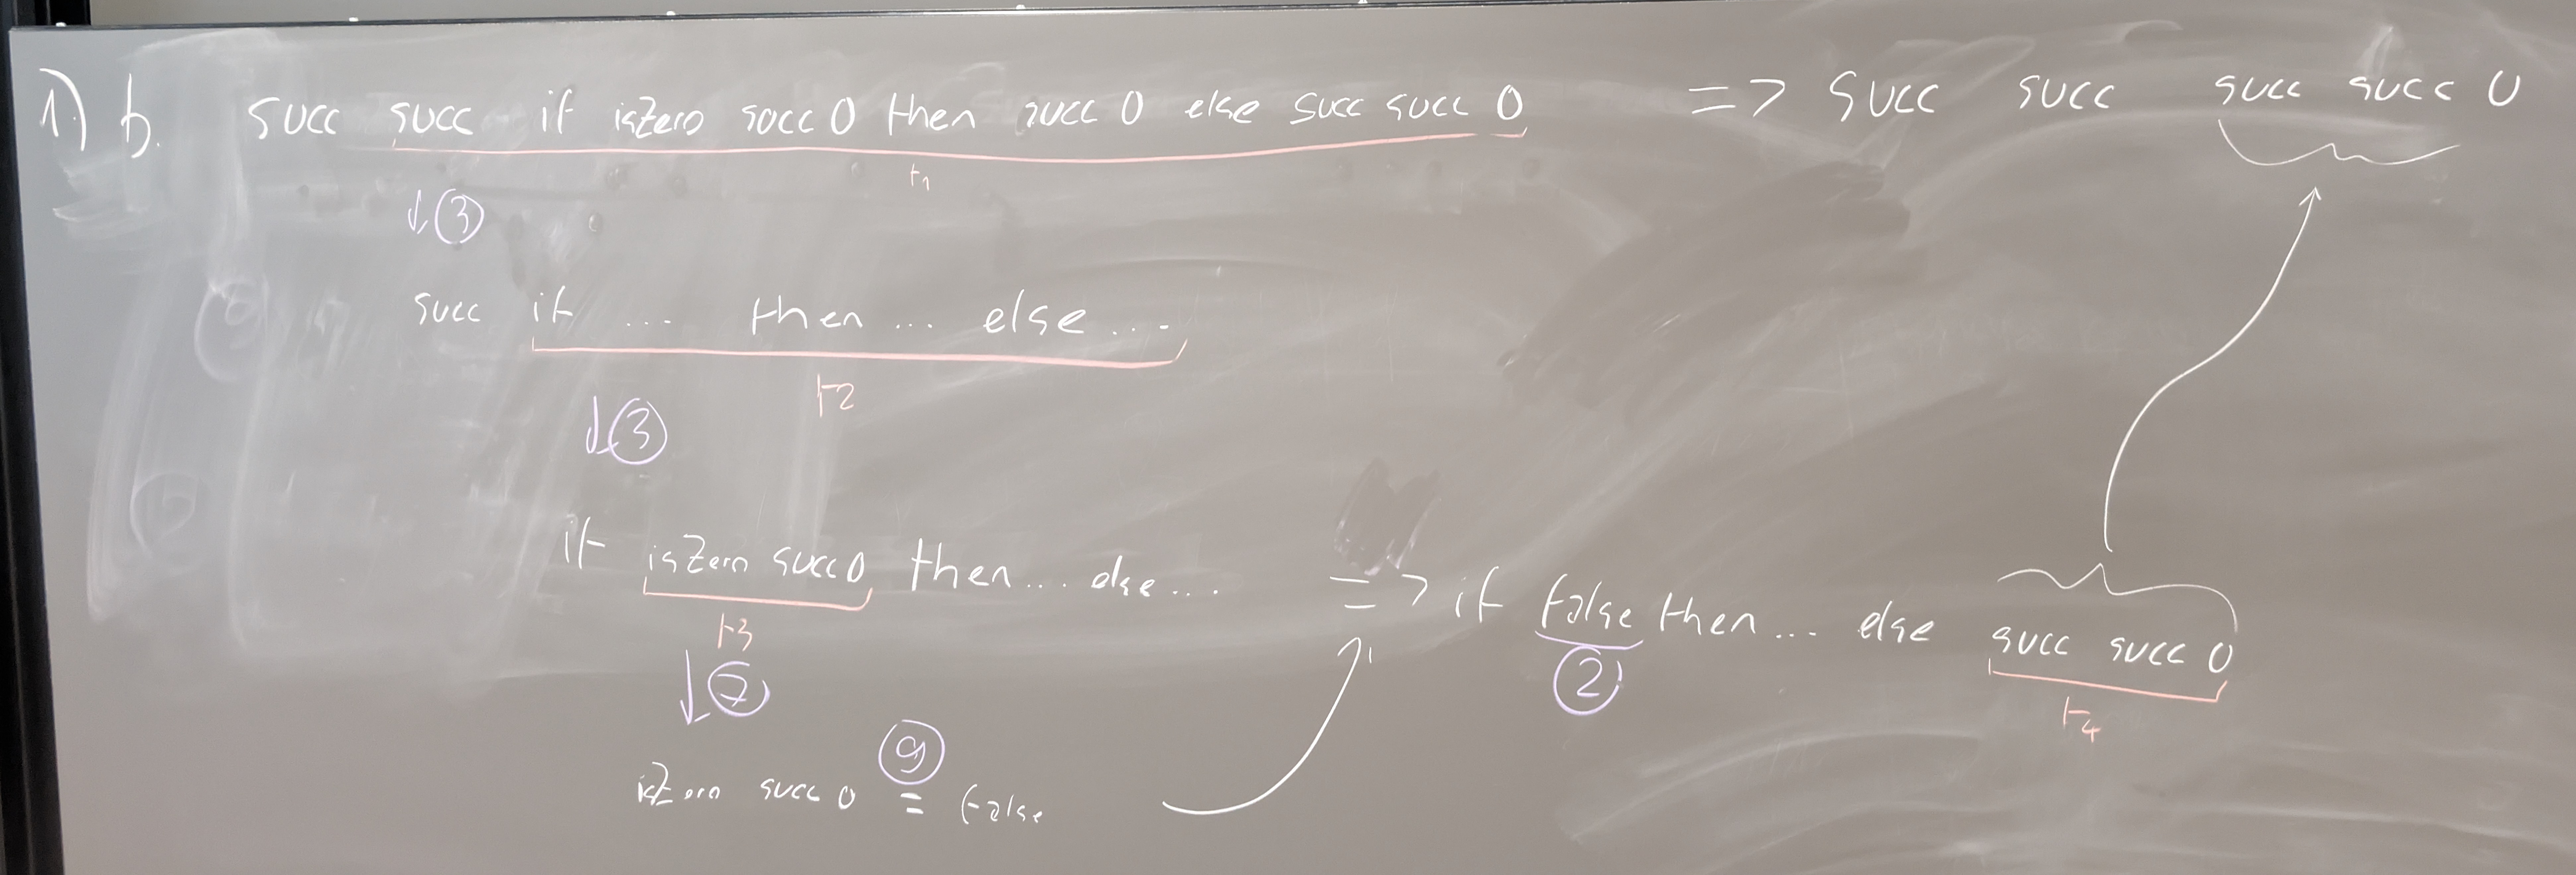 1) b. succ succ if isZero succ 0 then succ 0 else succ succ 0 => succ succ succ succ 0
t1
↓ 3
succ if ... then ... else ...
t2
↓ 3
if isZero succ 0 then ... else ... => if false then ... else succ succ 0
t3 2 t4
↓ 7
9
isZero succ 0 = false